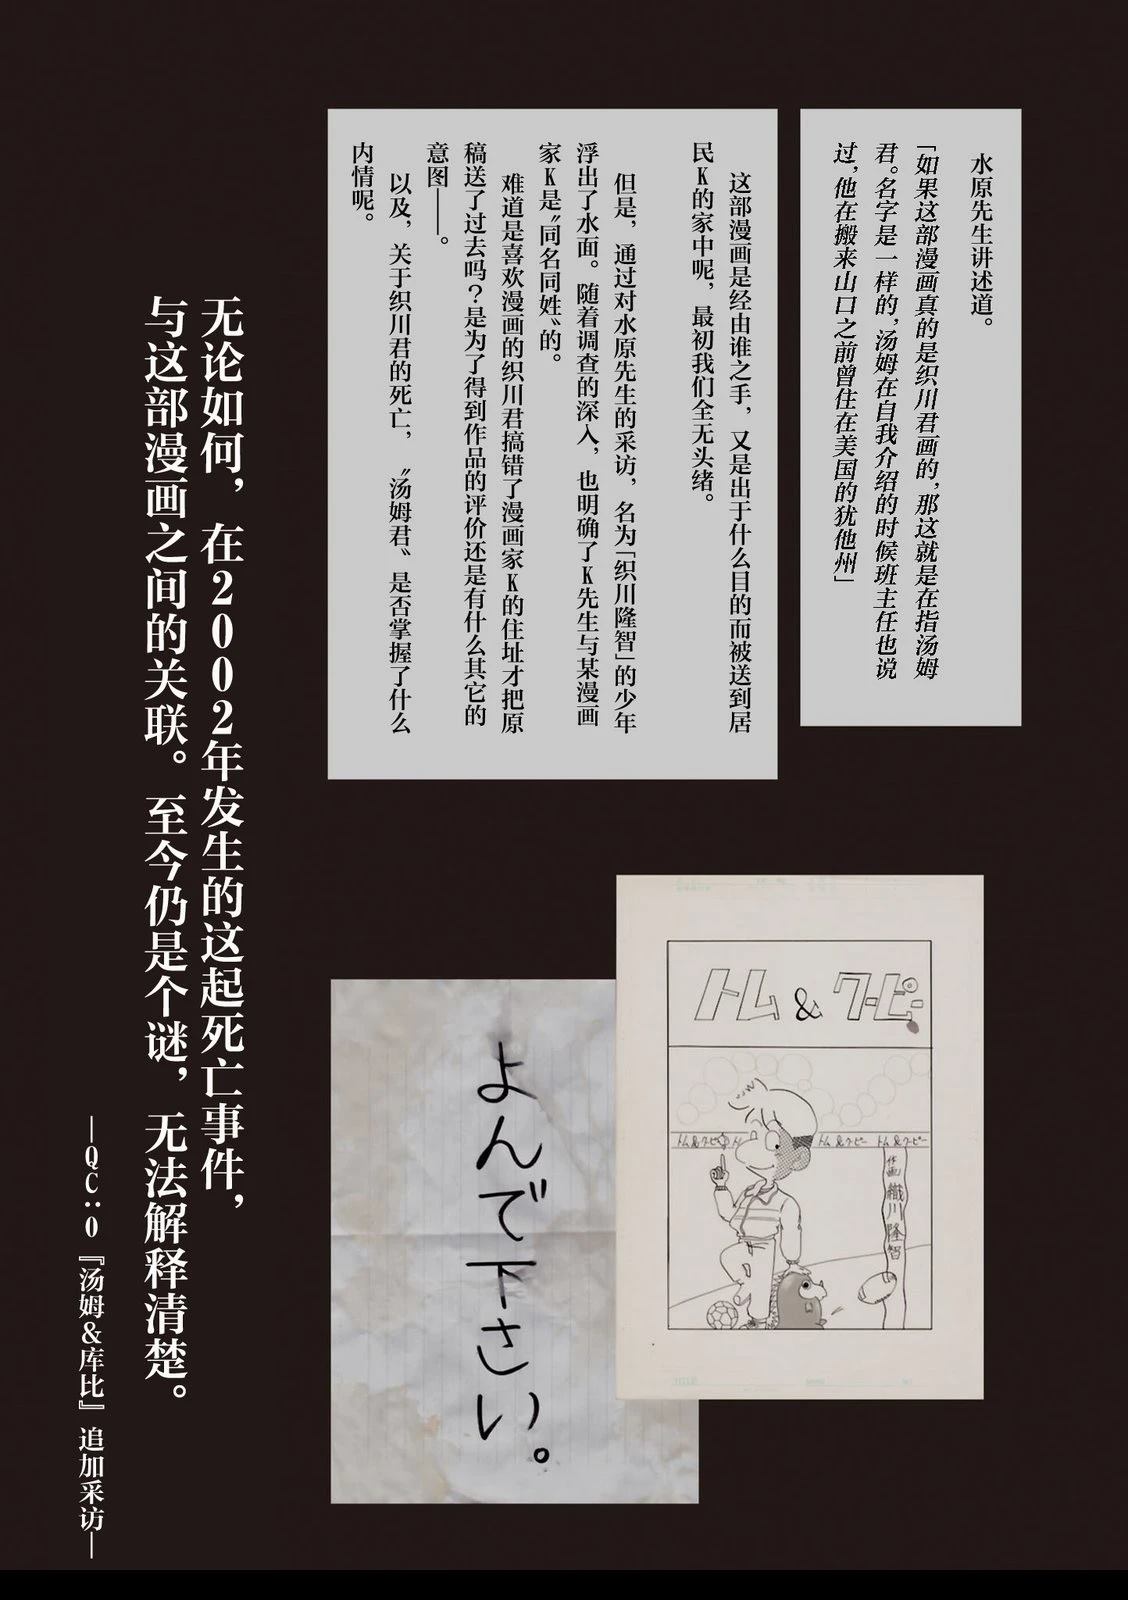 水原先生讲述道。
「如果这部漫画真的是织川君画的，那这就是在指汤姆
君。名字是一样的，汤姆在自我介绍的时候班主任也说
过，他在搬来山口之前曾住在美国的犹他州」
这部漫画是经由谁之手，又是出于什么目的而被送到居
民K的家中呢，最初我们全无头绪。
但是，通过对水原先生的采访，名为「织川隆智」的少年
浮出了水面。随着调查的深入，也明确了K先生与某漫画
家K是〝同名同姓〟的。
难道是喜欢漫画的织川君搞错了漫画家K的住址才把原
稿送了过去吗？是为了得到作品的评价还是有什么其它的
意图——。
以及，关于织川君的死亡，〝汤姆君〟是否掌握了什么
内情呢。
トム&クーピー
トム&クーピー ト
トム&クーピー トム&クーピー
作画 織川隆智
よんで下さい。
无论如何，在2002年发生的这起死亡事件，
与这部漫画之间的关联。至今仍是个谜，无法解释清楚。
—QC:0『汤姆&库比』追加采访—